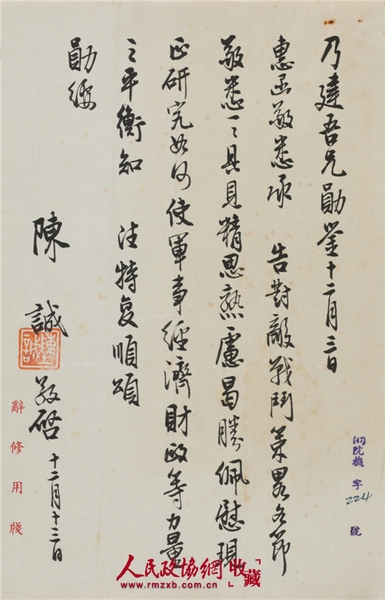 乃建吾兄勛鑒十二月三日
惠函敬悉承 告對敵戰鬥策略各節
敬悉一一具見精思熟慮曷勝佩慰現
正研究如何使軍事經濟財政等力量
之平衡知 注特复順頌
勛綏
陳誠敬啓十二月十三日
陳誠
辭修用牋
機字224號
人民政協網收藏
www.rmzxb.com.cn